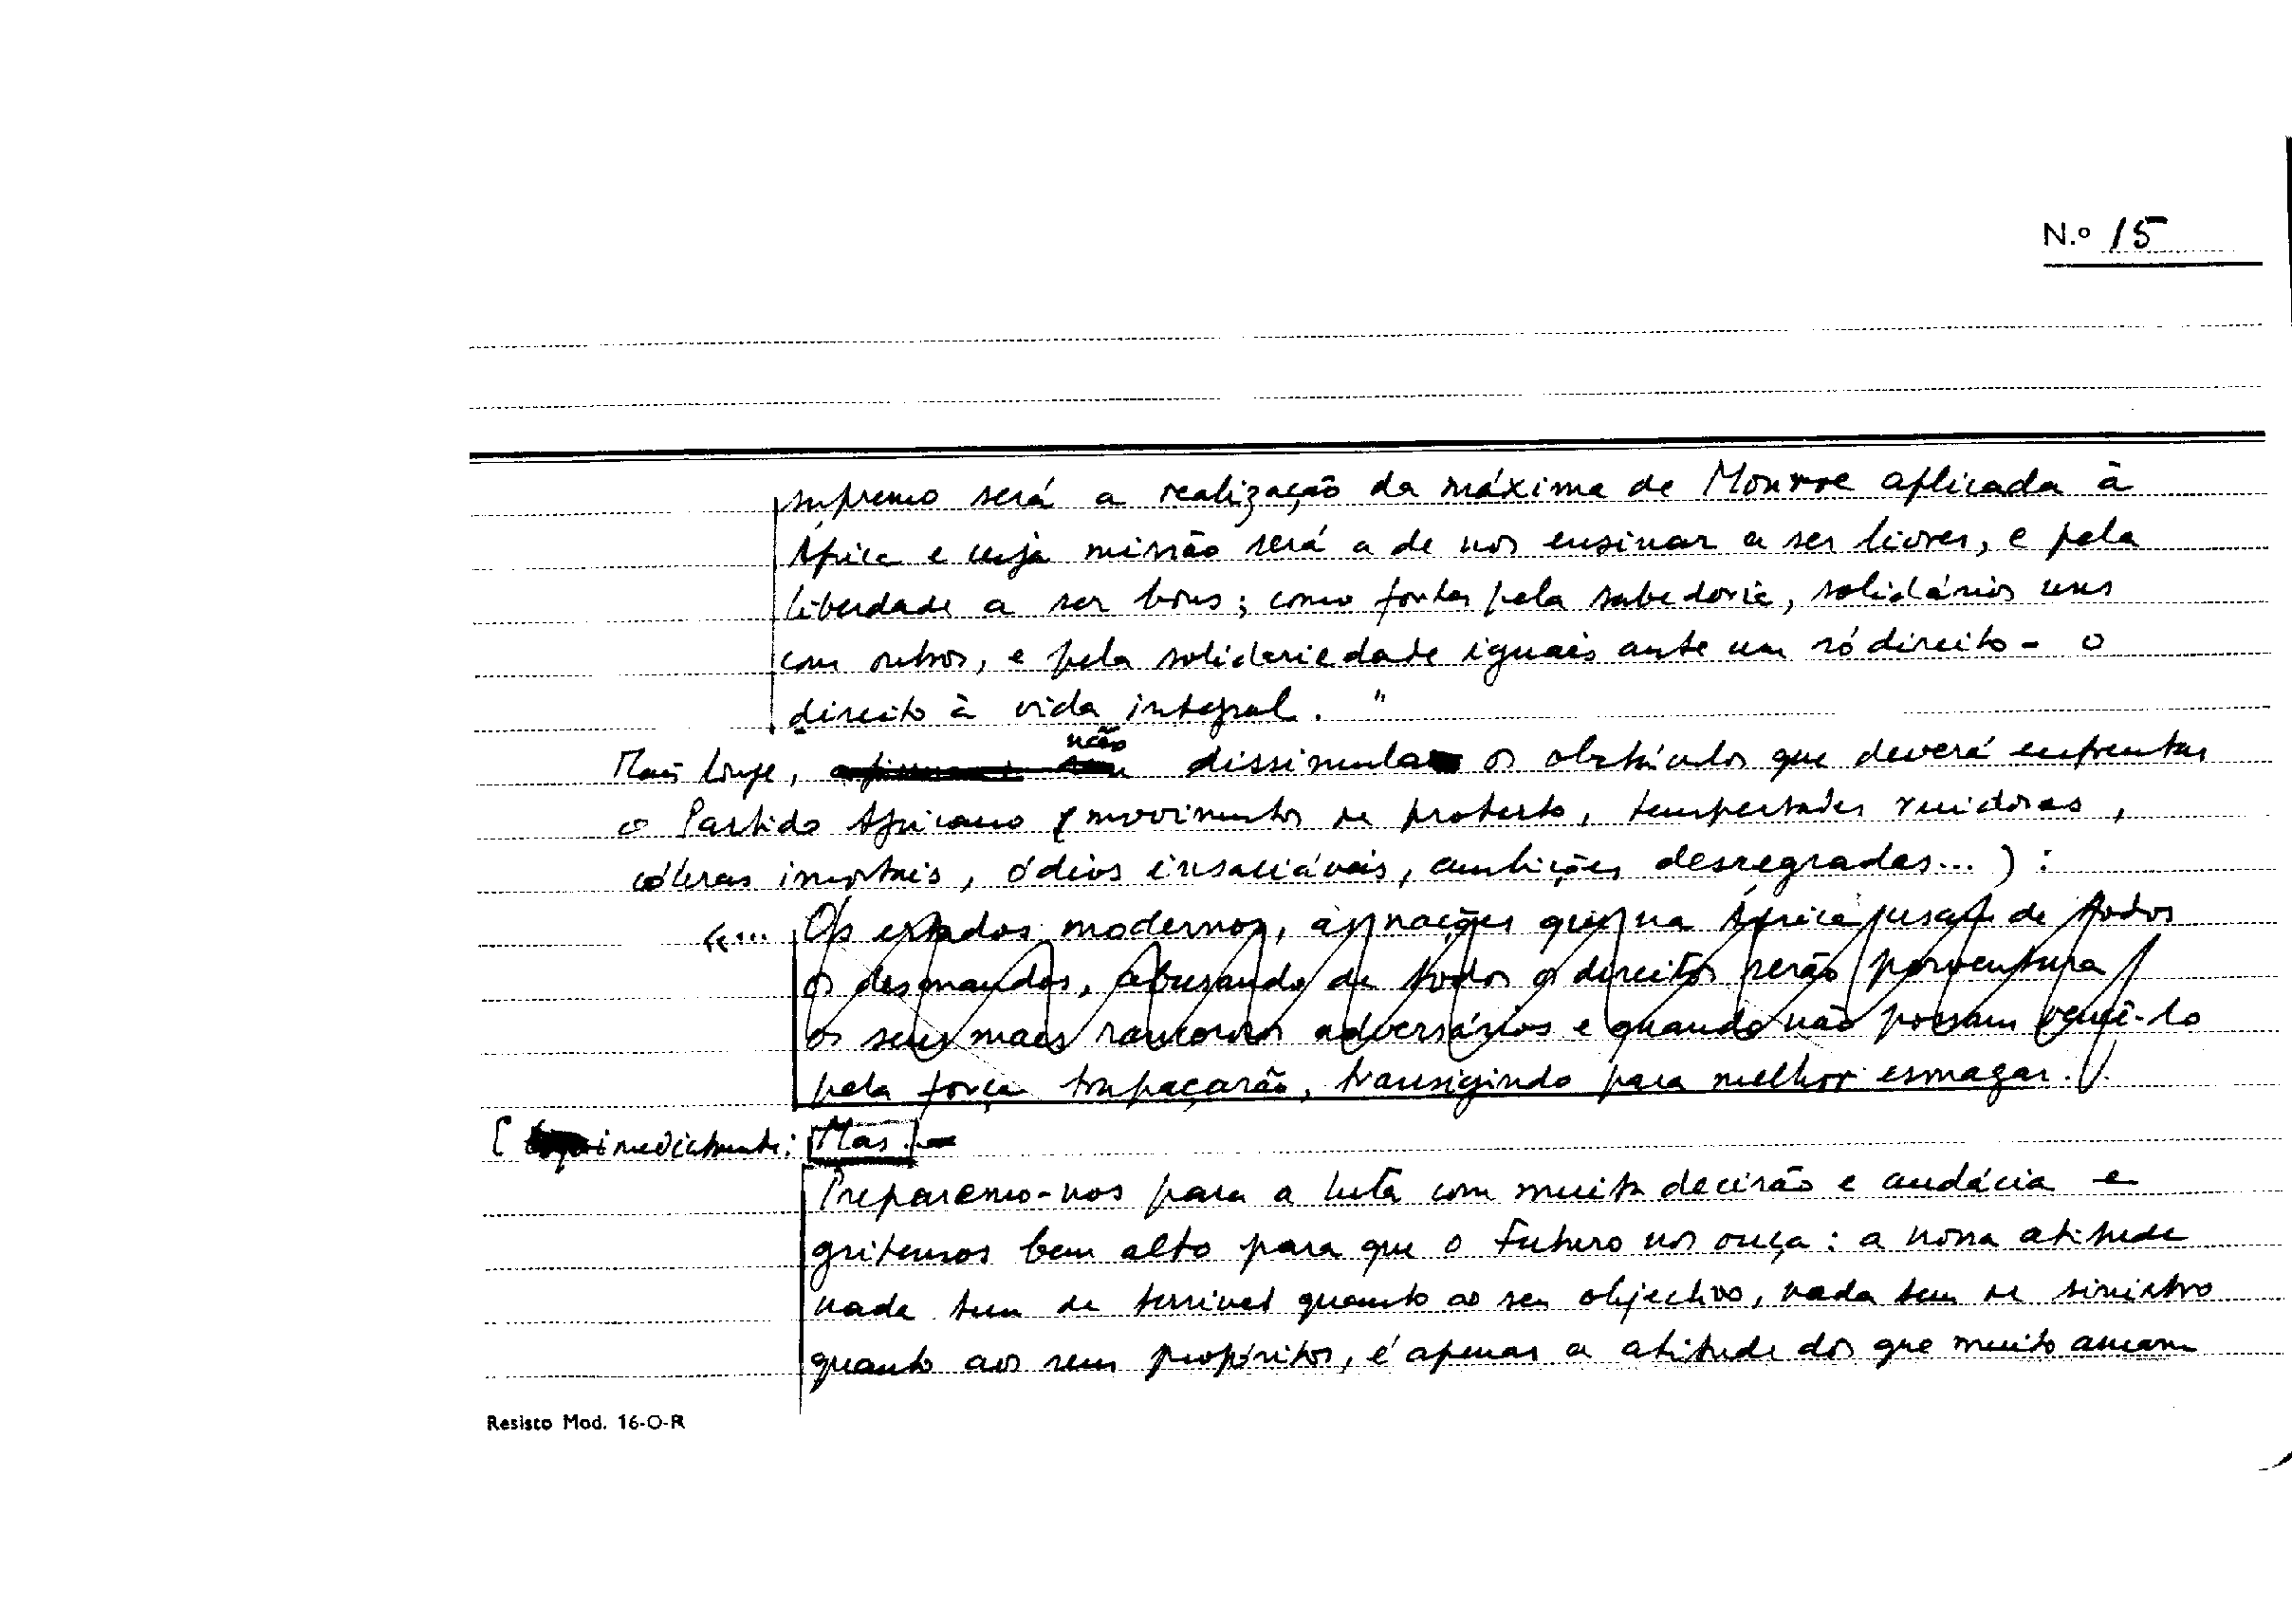 N.º 15
supremo será a realização da máxima de Monroe aplicada à
África e cuja missão será a de nos ensinar a ser livres, e pela
liberdade a ser bons; como fortes pela sabedoria, solidários uns
com outros, e pela solidariedade iguais ante um só direito - o
direito à vida integral. "
não
Mais longe, dissimula os obstáculos que deverá enfrentar
o Partido Africano (movimentos de protesto, tempestades ruidosas,
cóleras imortais, ódios insaciáveis, ambições desregradas...) :
«... Os estados modernos, as nações que na África usam de todos
os desmandos, abusando de todos os direitos serão porventura
os seus mais rancorosos adversários e quando não possam vencê-lo
pela força trapaçarão, transigindo para melhor esmagar.
[ imediatamente: Mas.-
Preparemo-nos para a luta com muita decisão e audácia e
gritemos bem alto para que o Futuro nos ouça: a nossa atitude
nada tem de terrível quanto ao seu objectivo, nada tem de sinistro
quanto aos seus propósitos, é apenas a atitude dos que muito amam
Resisto Mod. 16-O-R